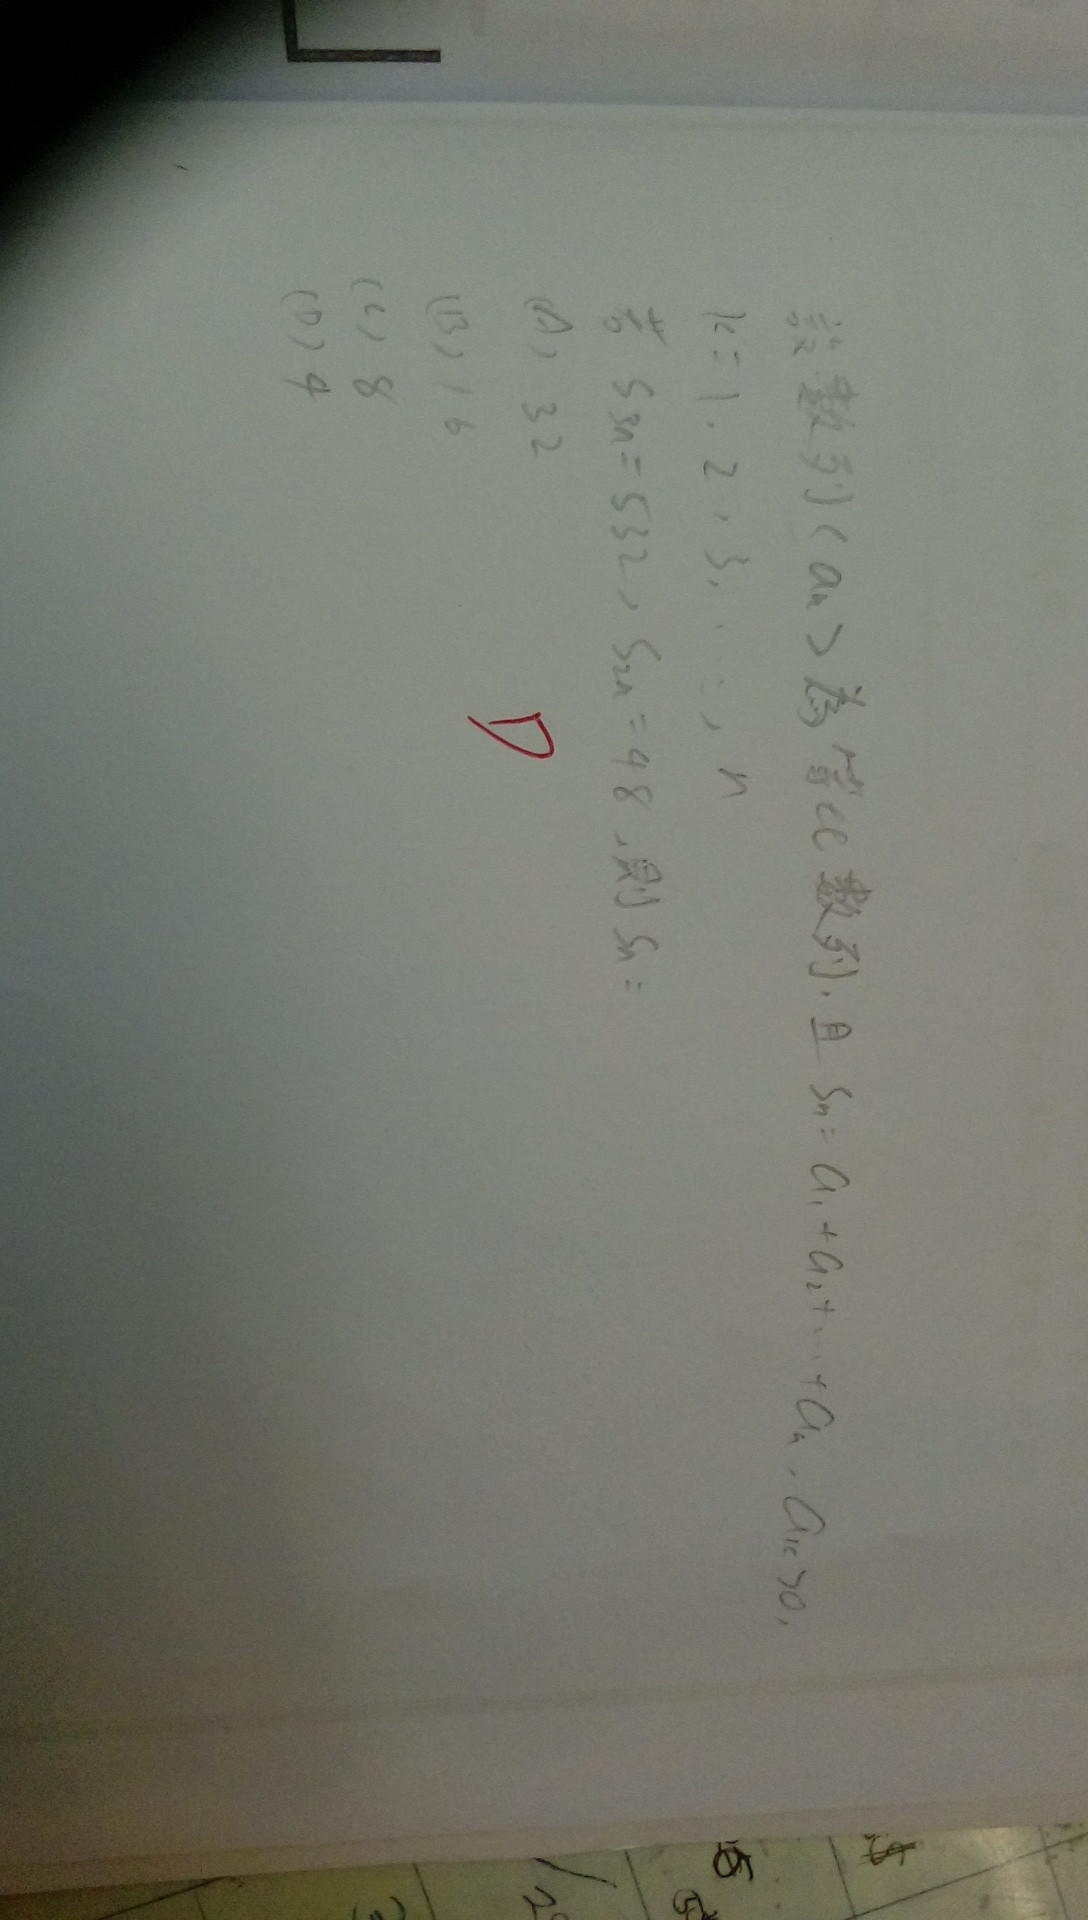 設數列〈an〉為等比數列,且 Sn=a1+a2+...+an,ak>0,
k=1,2,3,...,n
若 S3n=532,S2n=48,則 Sn=
(A),32
(B),16
(C),8
(D),4
D